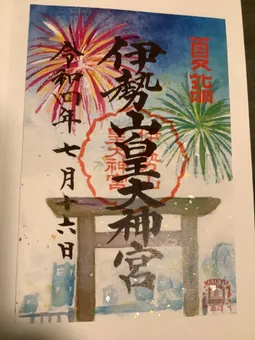 夏詣
伊勢山皇大神宮
令和四年 七月十六日
KEIKYU